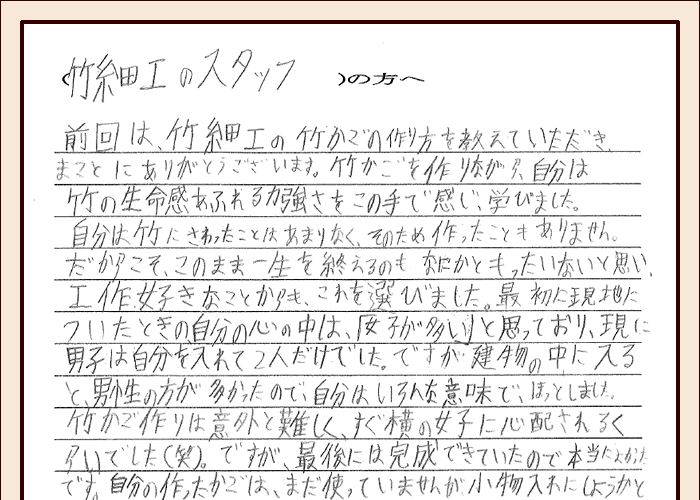 (竹細工のスタッフ)の方へ
前回は、竹細工の竹かごの作り方を教えていただき、
まことにありがとうございます。竹かごを作りながら、自分は
竹の生命感あふれる力強さをこの手で感じ、学びました。
自分は竹にさわったことはあまりなく、そのため作ったこともありません。
だからこそ、このまま一生を終えるのもなにかともったいないと思い、
工作好きなことからも、これを選びました。最初に現地に
ついたときの自分の心の中は、「女子が多い」と思っており、現に
男子は自分を入れて2人だけでした。ですが建物の中に入る
と、男性の方が多かったので、自分はいろんな意味で、ほっとしました。
竹かご作りは意外と難しく、すぐ横の女子に心配されるく
らいでした(笑)。ですが、最後には完成できていたので本当によかった
です。自分の作ったかごは、まだ使っていませんが小物入れにしようかと